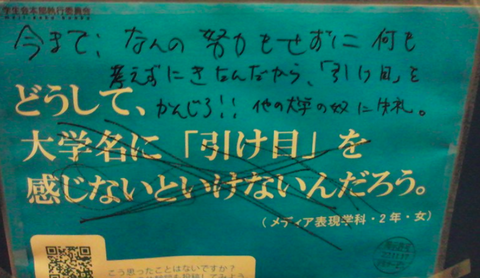 学生合本部執行委員会
今まで、なんの努力もせずに何も
考えずにきなんだから、「引け目」を
どうして、かんじろ!! 他の大学の奴に失礼。
大学名に「引け目」を
感じないといけないんだろう。
(メディア表現学科・2年・女)
こう思ったことはないですか?